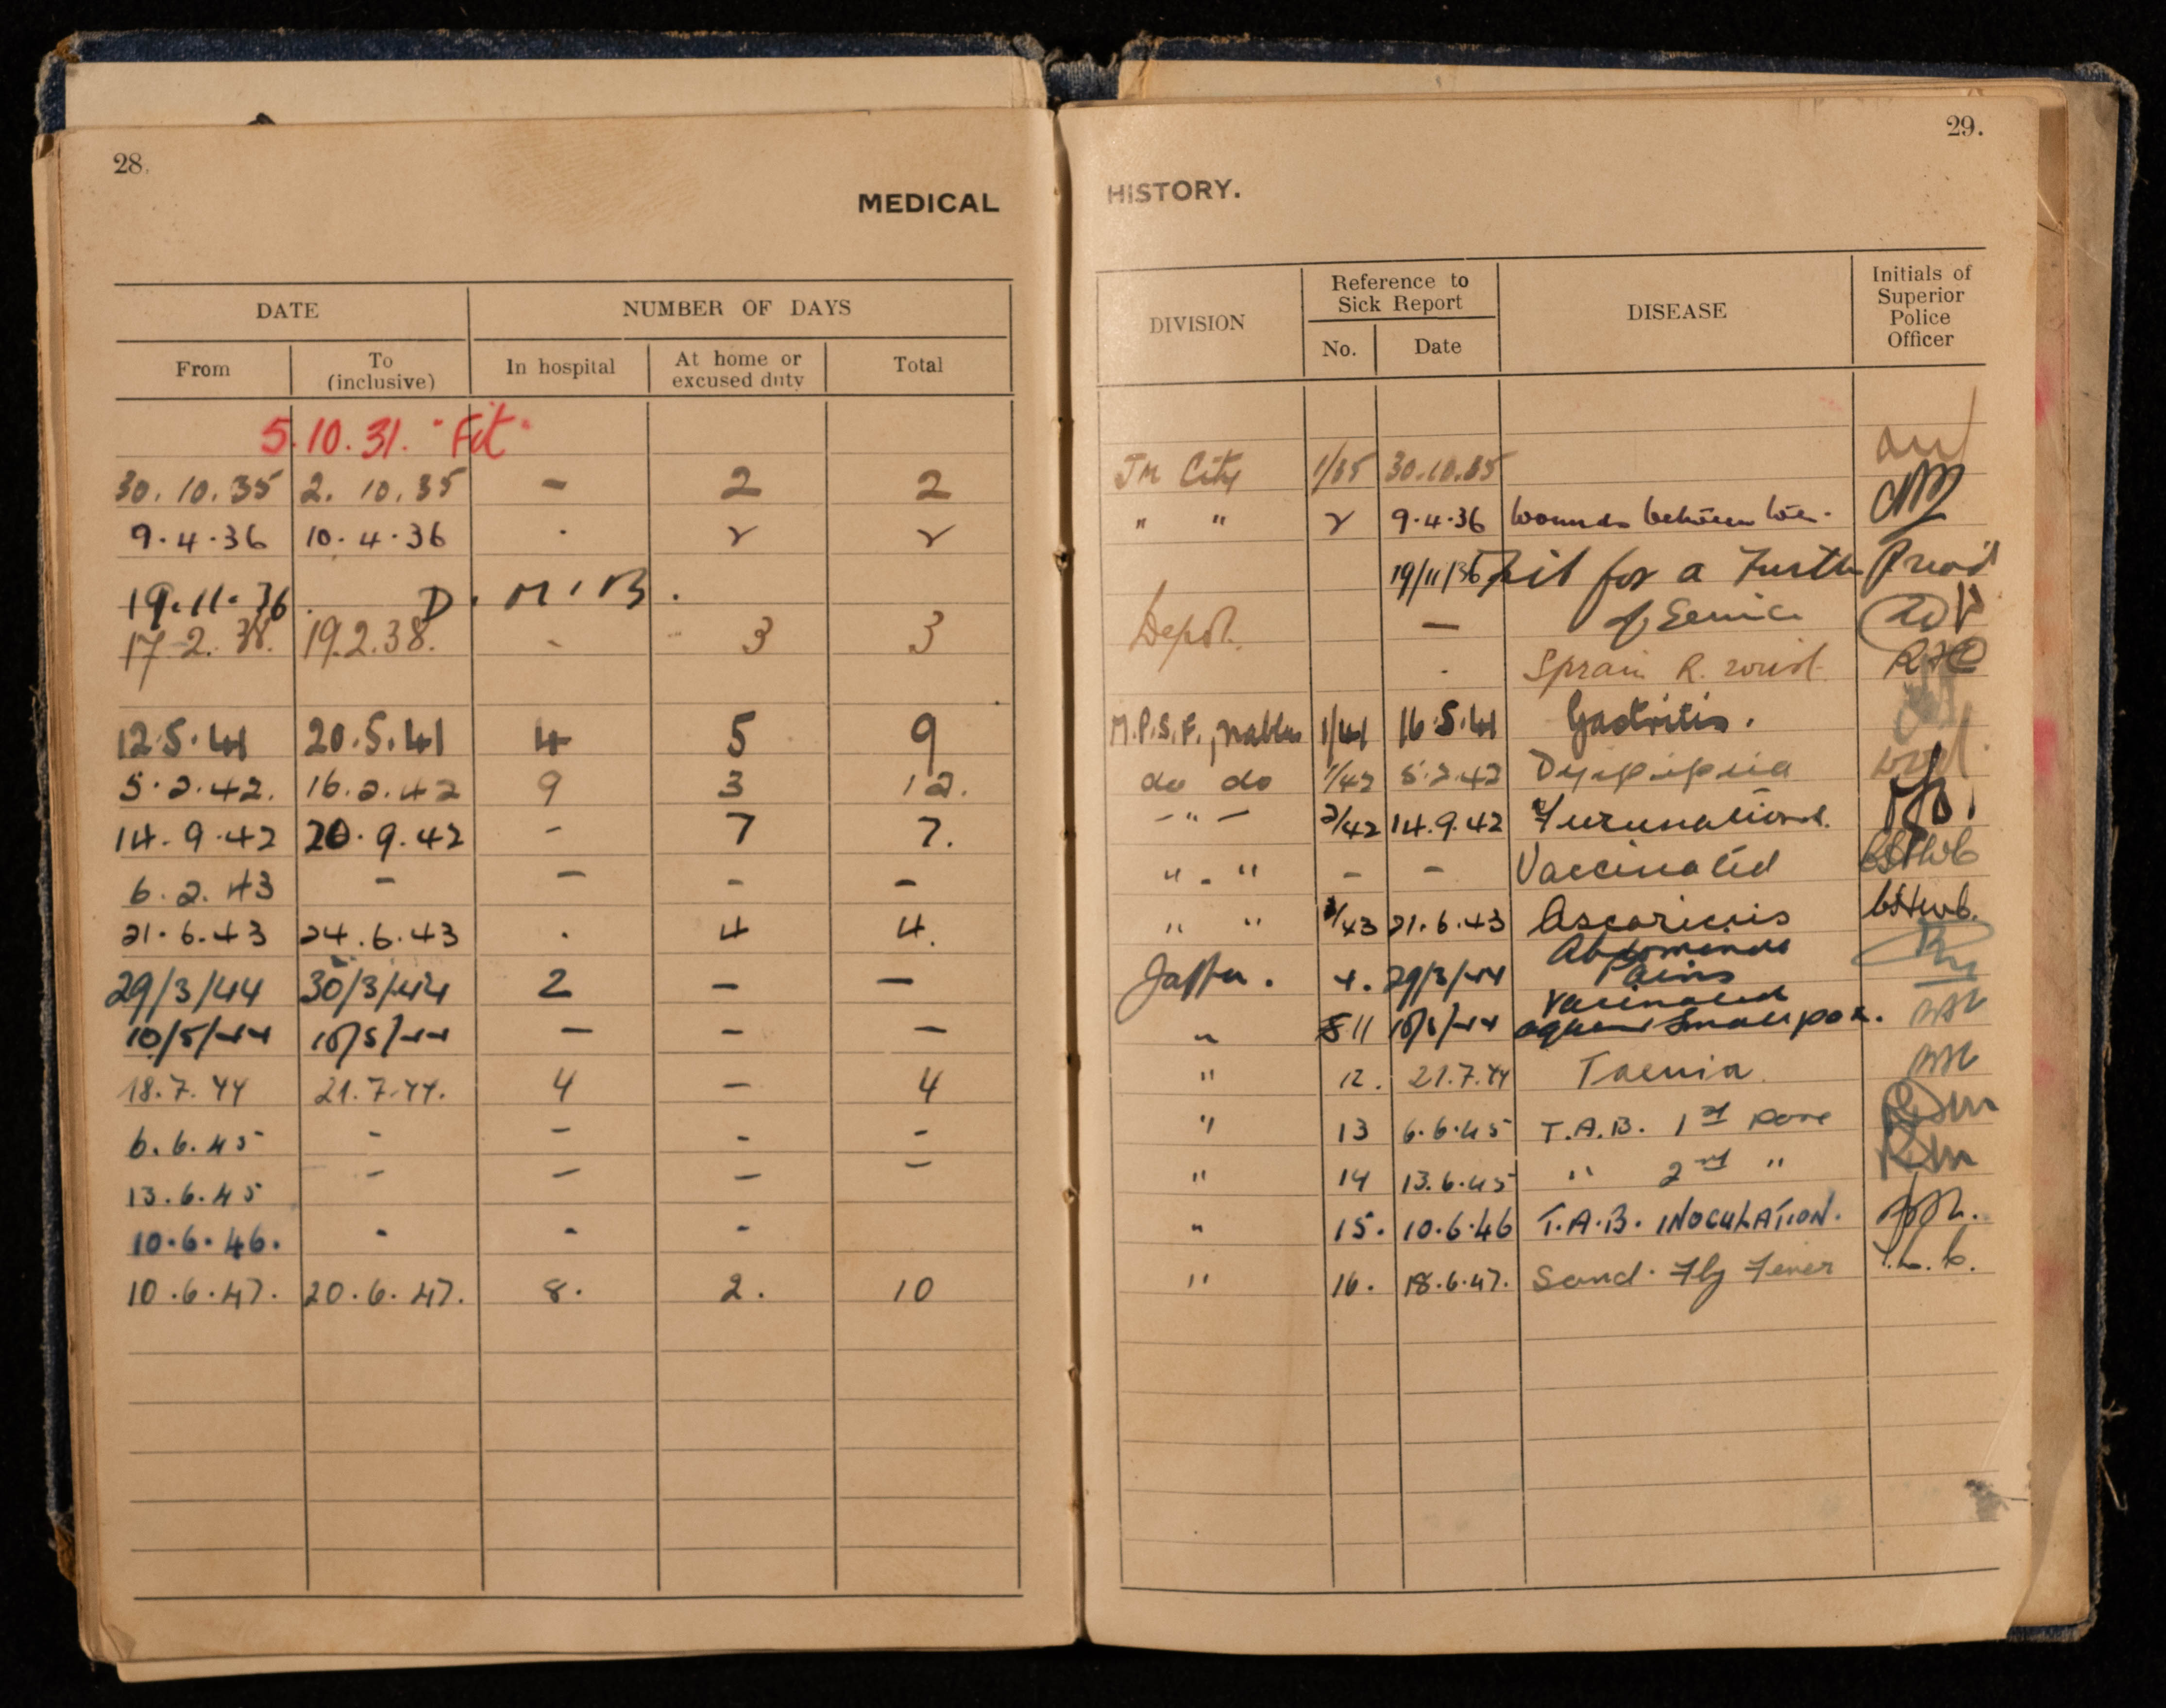 28.
MEDICAL
DATE NUMBER OF DAYS
From To (inclusive) In hospital At home or excused duty Total
5.10.31. "Fit"
30.10.35 2.10.35 - 2 2
9.4.36 10.4.36 . 2 2
19.11.36. D.M.B.
17.2.38. 19.2.38. - 3 3
12.5.41 20.5.41 4 5 9
5.2.42. 16.2.42 9 3 12.
14.9.42 20.9.42 - 7 7.
6.2.43 - - - -
21.6.43 24.6.43 . 4 4.
29/3/44 30/3/44 2 - -
10/5/44 10/5/44 - - -
18.7.44 21.7.44. 4 - 4
6.6.45 - - - -
13.6.45 - - - -
10.6.46. - - -
10.6.47. 20.6.47. 8. 2. 10
29.
HISTORY.
DIVISION Reference to Sick Report DISEASE Initials of Superior Police Officer
No. Date
Jm City 1/35 30.10.35
" " 2 9.4.36 wounds between toe.
19/11/36 Fit for a Furth Period
Depot. - of Service
. Sprain R. wrist.
M.P.S.F., Nablus 1/41 16.5.41 Gastritis.
do do 1/42 5.2.42
- " - 2/42 14.9.42
" - " - - Vaccinated
" " /43 21.6.43
Jaffa. 4. 29/3/44 Abdominal
Pains
Vaccinated
" 11 10/5/44 against Smallpox.
" 12. 21.7.44 Taenia.
" 13 6.6.45 T.A.B. 1st Dose
" 14 13.6.45 " 2nd "
" 15. 10.6.46 T.A.B. INOCULATION.
" 16. 18.6.47. Sand. Fly Fever